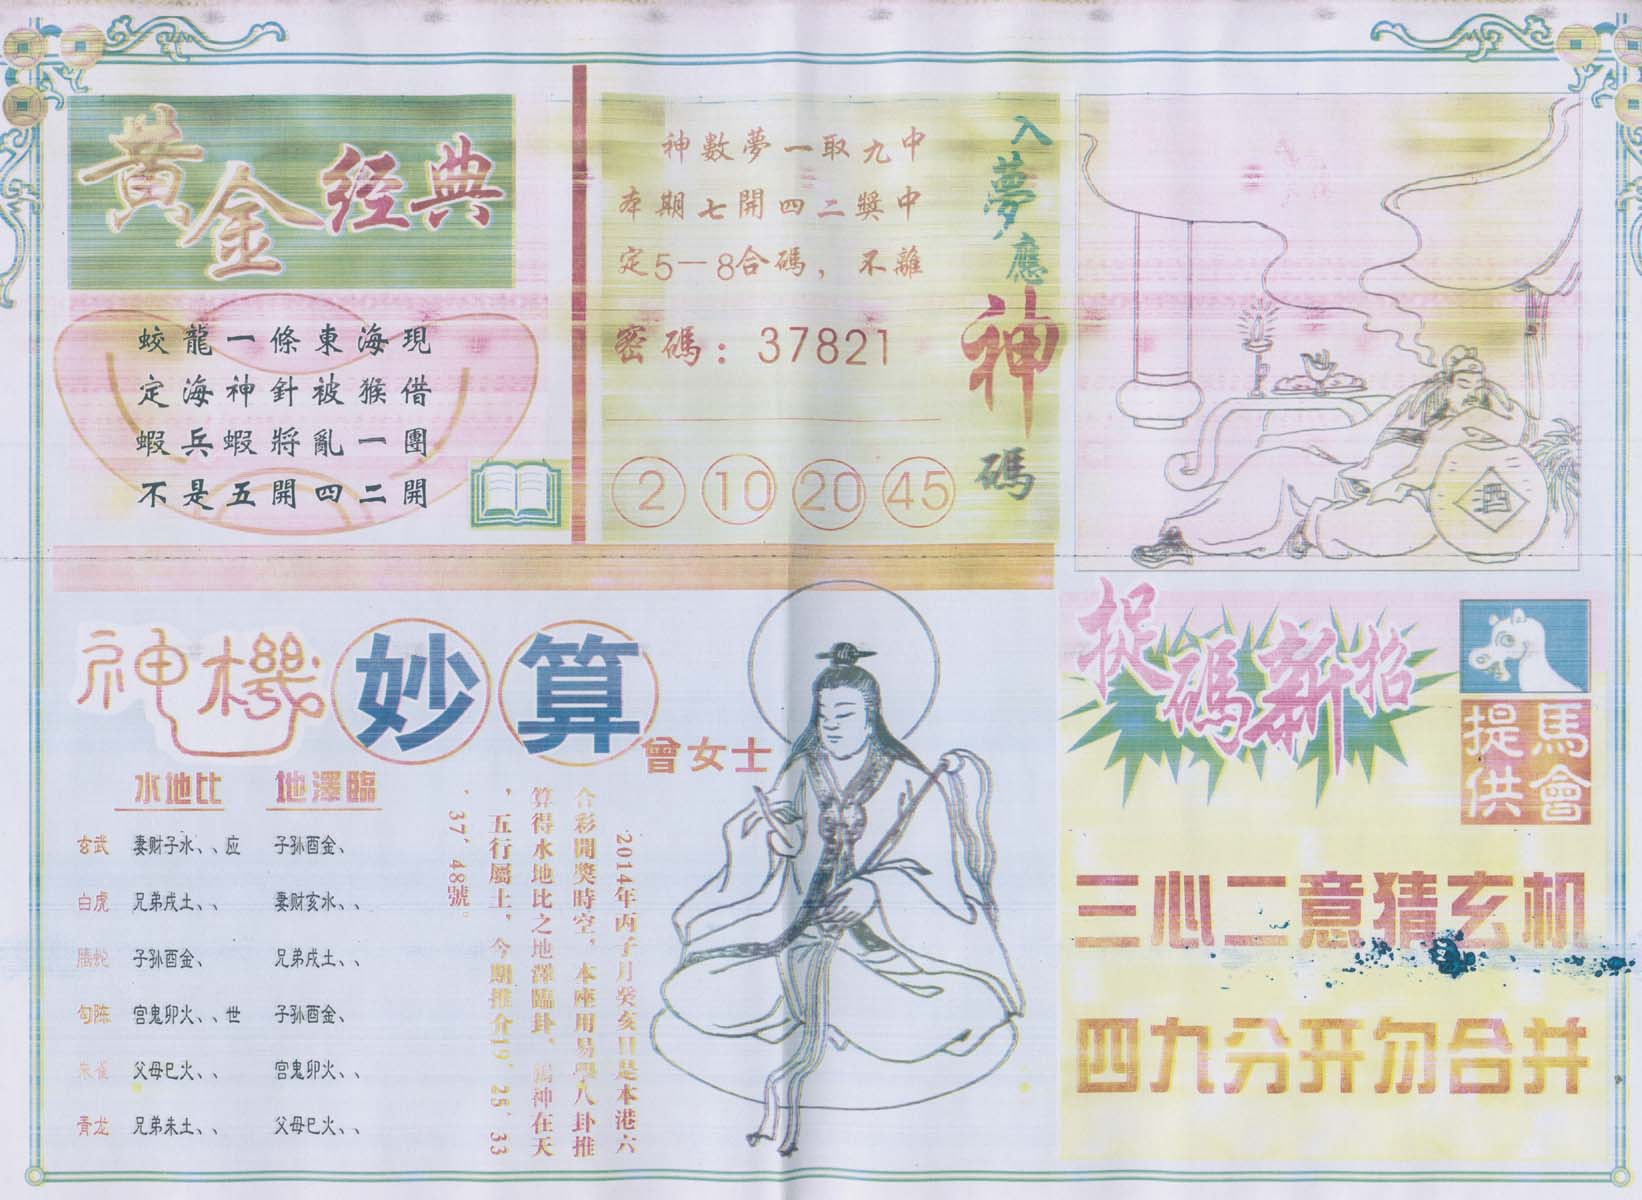 黄金经典
蛟龍一條東海現
定海神針被猴借
蝦兵蝦將亂一團
不是五開四二開
入夢應神碼
神數夢一取九中
本期七開四二獎中
定5—8合碼，不離
密碼：37821
2 10 20 45
酒
神機妙算
曾女士
水地比 地澤臨
玄武 妻财子水、、应 子孙酉金、
白虎 兄弟戌土、 妻财亥水、、
螣蛇 子孙酉金、、 兄弟戌土、、
勾陈 宫鬼卯火、、世 子孙酉金、
朱雀 父母巳火、、 宫鬼卯火、、
青龙 兄弟未土、、 父母巳火、、
2014年丙子月癸亥日是本港六
合彩開獎時空，本座用易學八卦推
算得水地比之地澤臨卦、鶴神在天
，五行屬土，今期推介19、25、33
、37、48號。
捉碼新招
馬會提供
三心二意猜玄机
四九分开勿合并